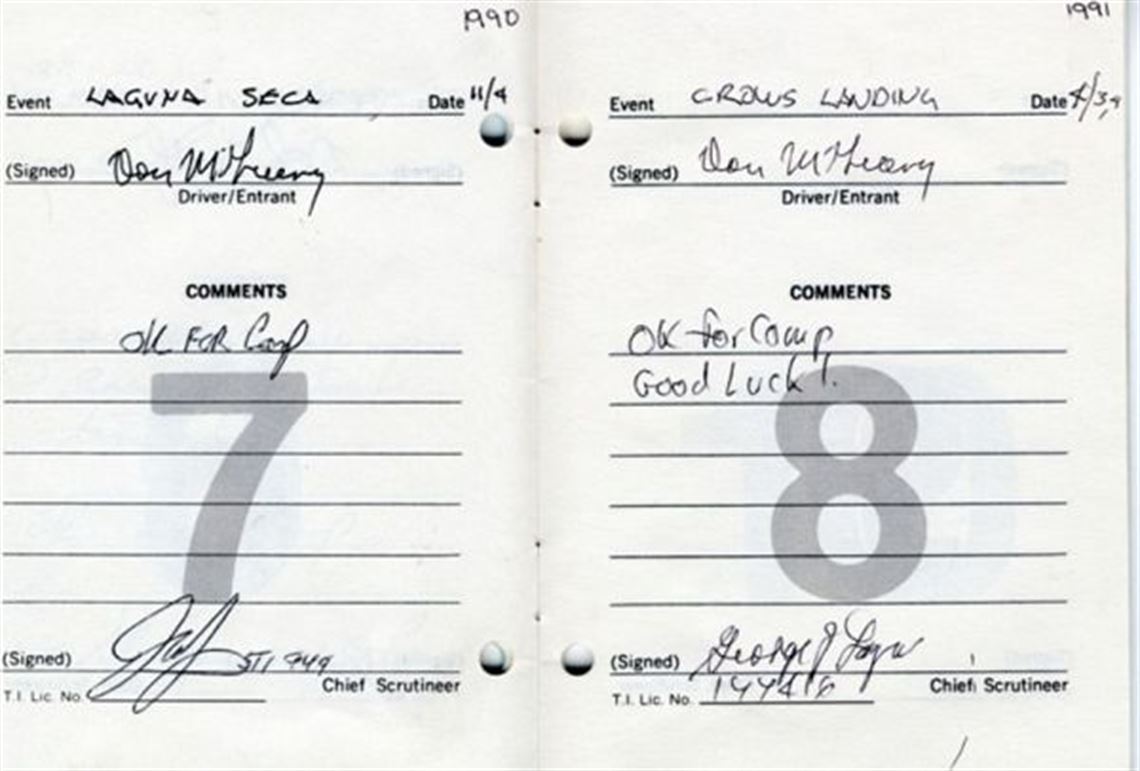 1990
Event LAGUNA SECA Date 11/4
(Signed) Don
Driver/Entrant
COMMENTS
OK FOR Comp
7
(Signed)
Chief Scrutineer
T.I. Lic. No.
1991
Event CROWS LANDING Date
(Signed) Don
Driver/Entrant
COMMENTS
OK for Comp
Good Luck!
8
(Signed) George J
Chief Scrutineer
T.I. Lic. No. 144416